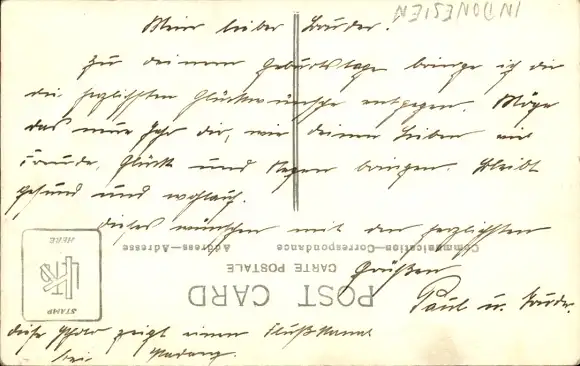 INDONESIEN
Mein lieber Bruder.
Zu deinem Geburtstage bringe ich dir
die herzlichsten Glückwünsche entgegen. Möge
das neue Jahr dir, wie deinen Lieben viel
Freude, Glück und Segen bringen. Bleibt
gesund und wohlauf.
Dieses wünschen mit den herzlichsten
Grüßen
Paul u.
Diese Photo zeigt einen
bei Padang.
Communication—Correspondance
Address—Adresse
CARTE POSTALE
POST CARD
STAMP
HERE